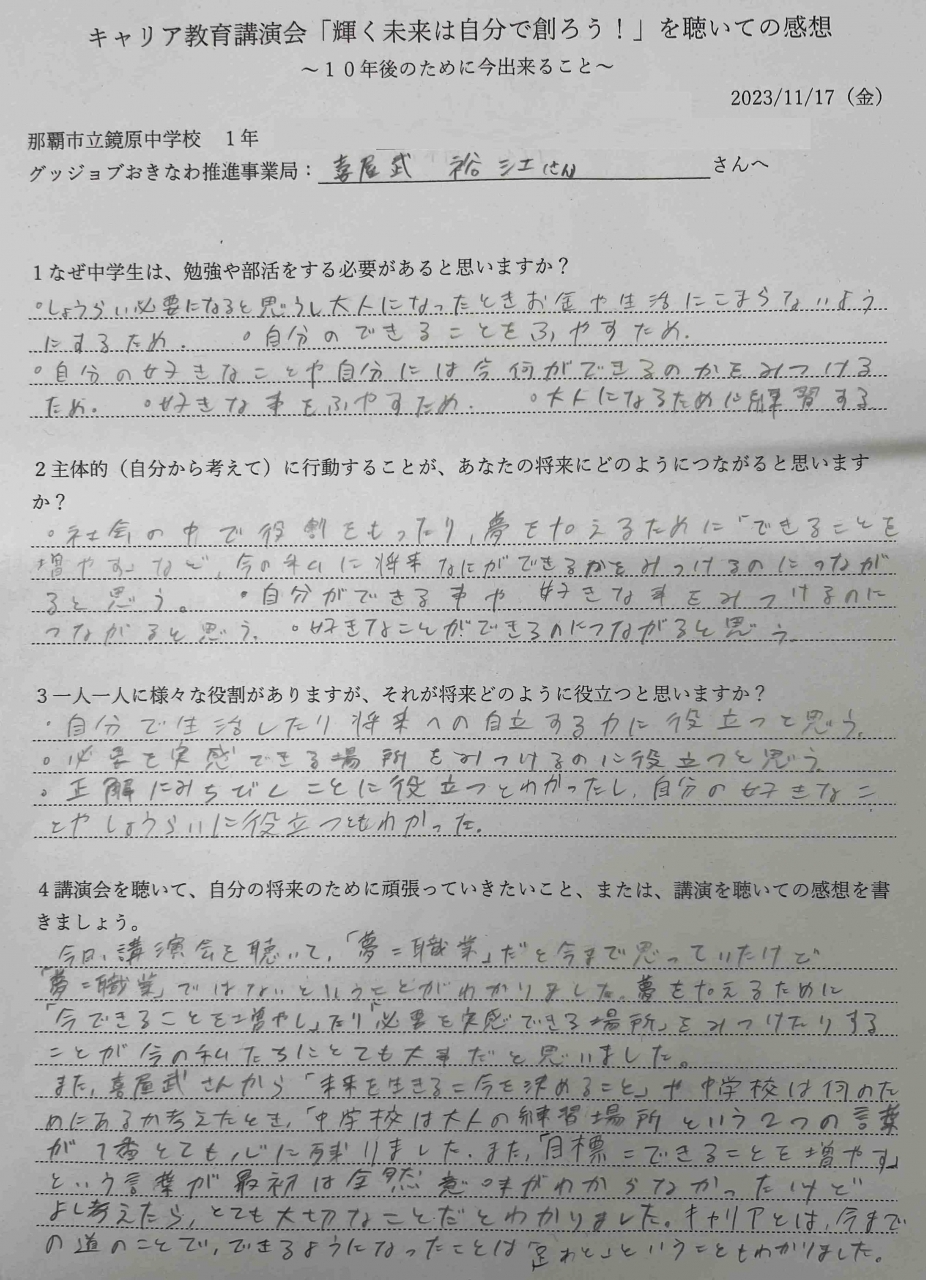 キャリア教育講演会「輝く未来は自分で創ろう！」を聴いての感想
～１０年後のために今出来ること～
2023/11/17（金）
那覇市立鏡原中学校　１年
グッジョブおきなわ推進事業局：喜屋武　裕江さん　さんへ
１なぜ中学生は、勉強や部活をする必要があると思いますか？
・しょうらい必要になると思うし大人になったときお金や生活にこまらないよう
にするため。　・自分のできることをふやすため.
・自分の好きなことや自分には今何ができるのかをみつける
ため.　・好きな事をふやすため.　・大人になるために練習する
２主体的（自分から考えて）に行動することが、あなたの将来にどのようにつながると思います
か？
・社会の中で役割をもったり,夢を叶えるために「できることを
増やす」など,今の私に将来なにができるかをみつけるのにつなが
ると思う。　・自分ができる事や　好きな事をみつけるのに
つながると思う.　・好きなことができるのにつながると思う
３一人一人に様々な役割がありますが、それが将来どのように役立つと思いますか？
・自分で生活したり将来への自立する力に役立つと思う.
・必要を実感できる場所をみつけるのに役立つと思う.
・正解にみちびくことに役立つとわかったし,自分の好きなこ
とやしょうらいに役立つともわかった.
４講演会を聴いて、自分の将来のために頑張っていきたいこと、または、講演を聴いての感想を書
きましょう。
今日,講演会を聴いて,「夢＝職業」だと今まで思っていたけど
「夢＝職業」ではないということがわかりました.夢を叶えるために
「今できることを増やし」たり「必要を実感できる場所」をみつけたりする
ことが今の私たちにとても大事だと思いました。
また,喜屋武さんから「未来を生きる＝今を決めること」や中学校は何のた
めにあるか考えたとき,「中学校は大人の練習場所という2つの言葉
が1番とても心に残りました.また,「目標＝できることを増やす」
という言葉が最初は全然意味がわからなかったけど
よく考えたら,とても大切なことだとわかりました.キャリアとは,今まで
の道のことで,できるようになったことは「足あと」ということもわかりました。